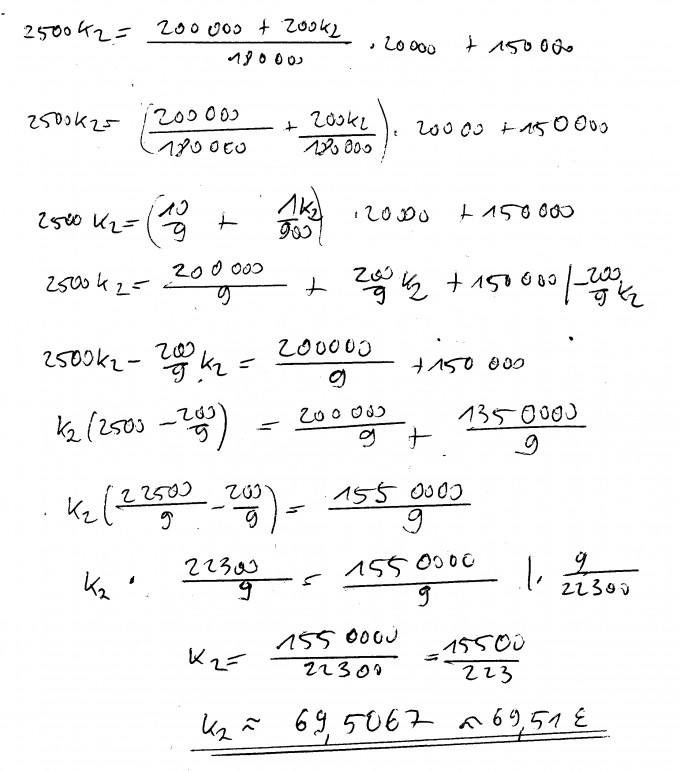 2500k₂ = (200 000 + 200k₂)/180 000 · 20 000 + 150 000
2500k₂ = (200 000/180 000 + 200k₂/180 000) · 200 00 + 150 000
2500 k₂ = (10/9 + 1k₂/900) · 20000 + 150 000
2500 k₂ = 200 000/9 + 200/9 k₂ + 150 000 | - 200/9 k₂
2500k₂ - 200/9 k₂ = 200000/9 + 150 000
k₂ (2500 - 200/9) = 200 000/9 + 135 0000/9
k₂ (22500/9 - 200/9) = 155 0000/9
k₂ · 22300/9 = 155 0000/9 | · 9/22300
k₂ = 155 0000/22300 = 15500/223
k₂ ≈ 69,5067 ≈ 69,51 €